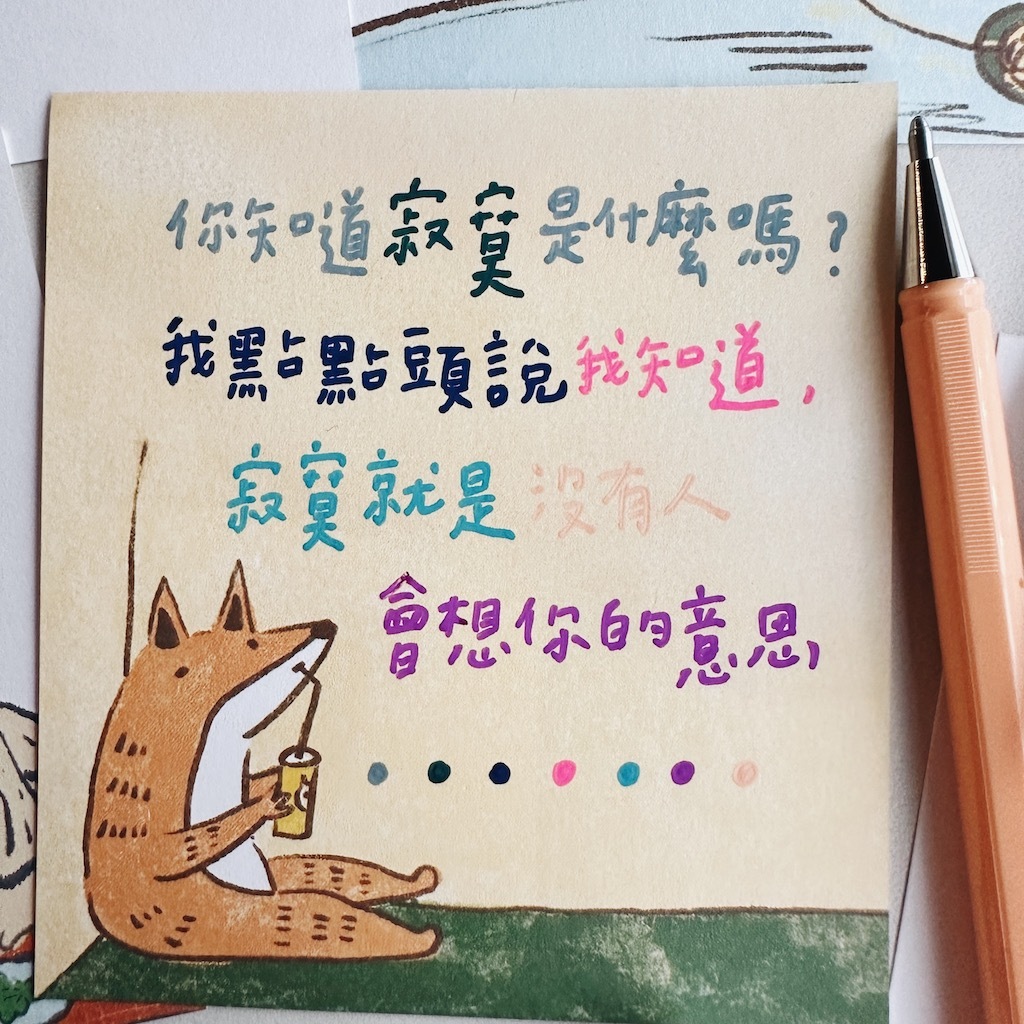 你知道寂寞是什麼嗎?
我點點頭說我知道,
寂寞就是沒有人
會想你的意思